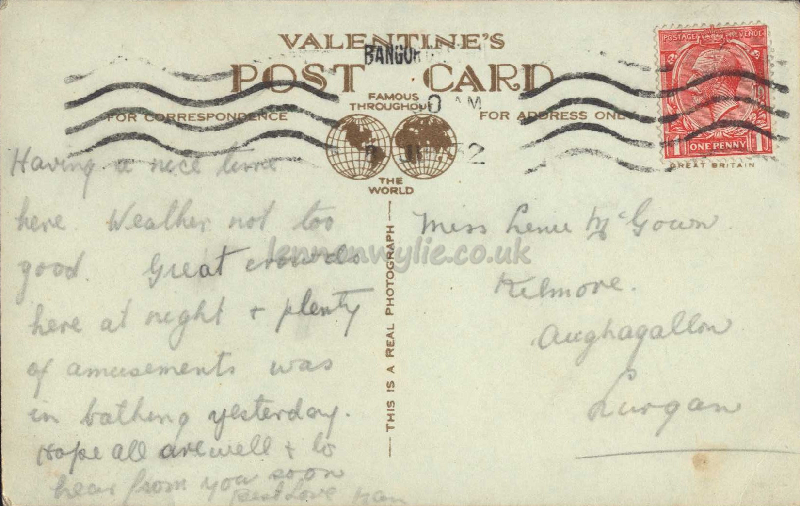 VALENTINE'S
BANGOR
POST CARD
FAMOUS
THROUGHOUT
THE
WORLD
FOR CORRESPONDENCE
FOR ADDRESS ONLY
0 AM
2
POSTAGE REVENUE
1 ONE PENNY 1
GREAT BRITAIN
Having a nice time
here. Weather not too
good. Great crowds
here at night & plenty
of amusements was
in bathing yesterday.
Hope all are well & to
hear from you soon
Best Love
THIS IS A REAL PHOTOGRAPH
Miss Lenie McGown
Kilmore.
Aughagallon
Lurgan
lennonwylie.co.uk